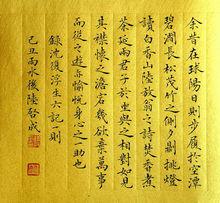 余昔在球陽日則步屧於空潭
碧澗長松茂竹之側夕則挑燈
讀白香山陸放翁之詩焚香煮
茶延兩君子於坐與之相對如見
其襟懷之澹宕幾欲棄萬事
而從之遊亦愉悅身心之一助也
錄沈復浮生六記一則
己丑雨水後陸啓成